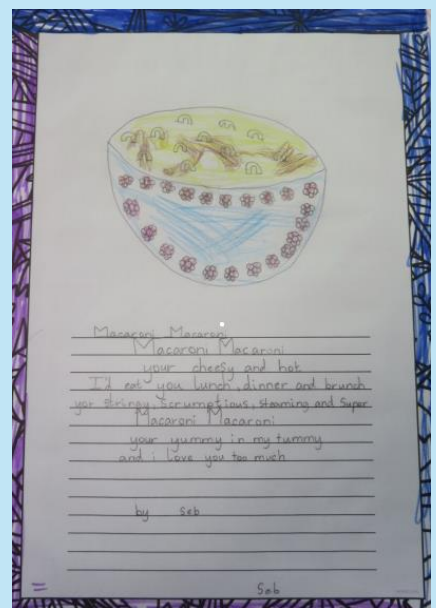 Macaroni Macaroni
Macaroni Macaroni
your cheesy and hot
I'd eat you lunch, dinner and brunch
yor stringy, scrumptious, steaming and super
Macaroni Macaroni
your yummy in my tummy
and i love you too much
by seb
Seb